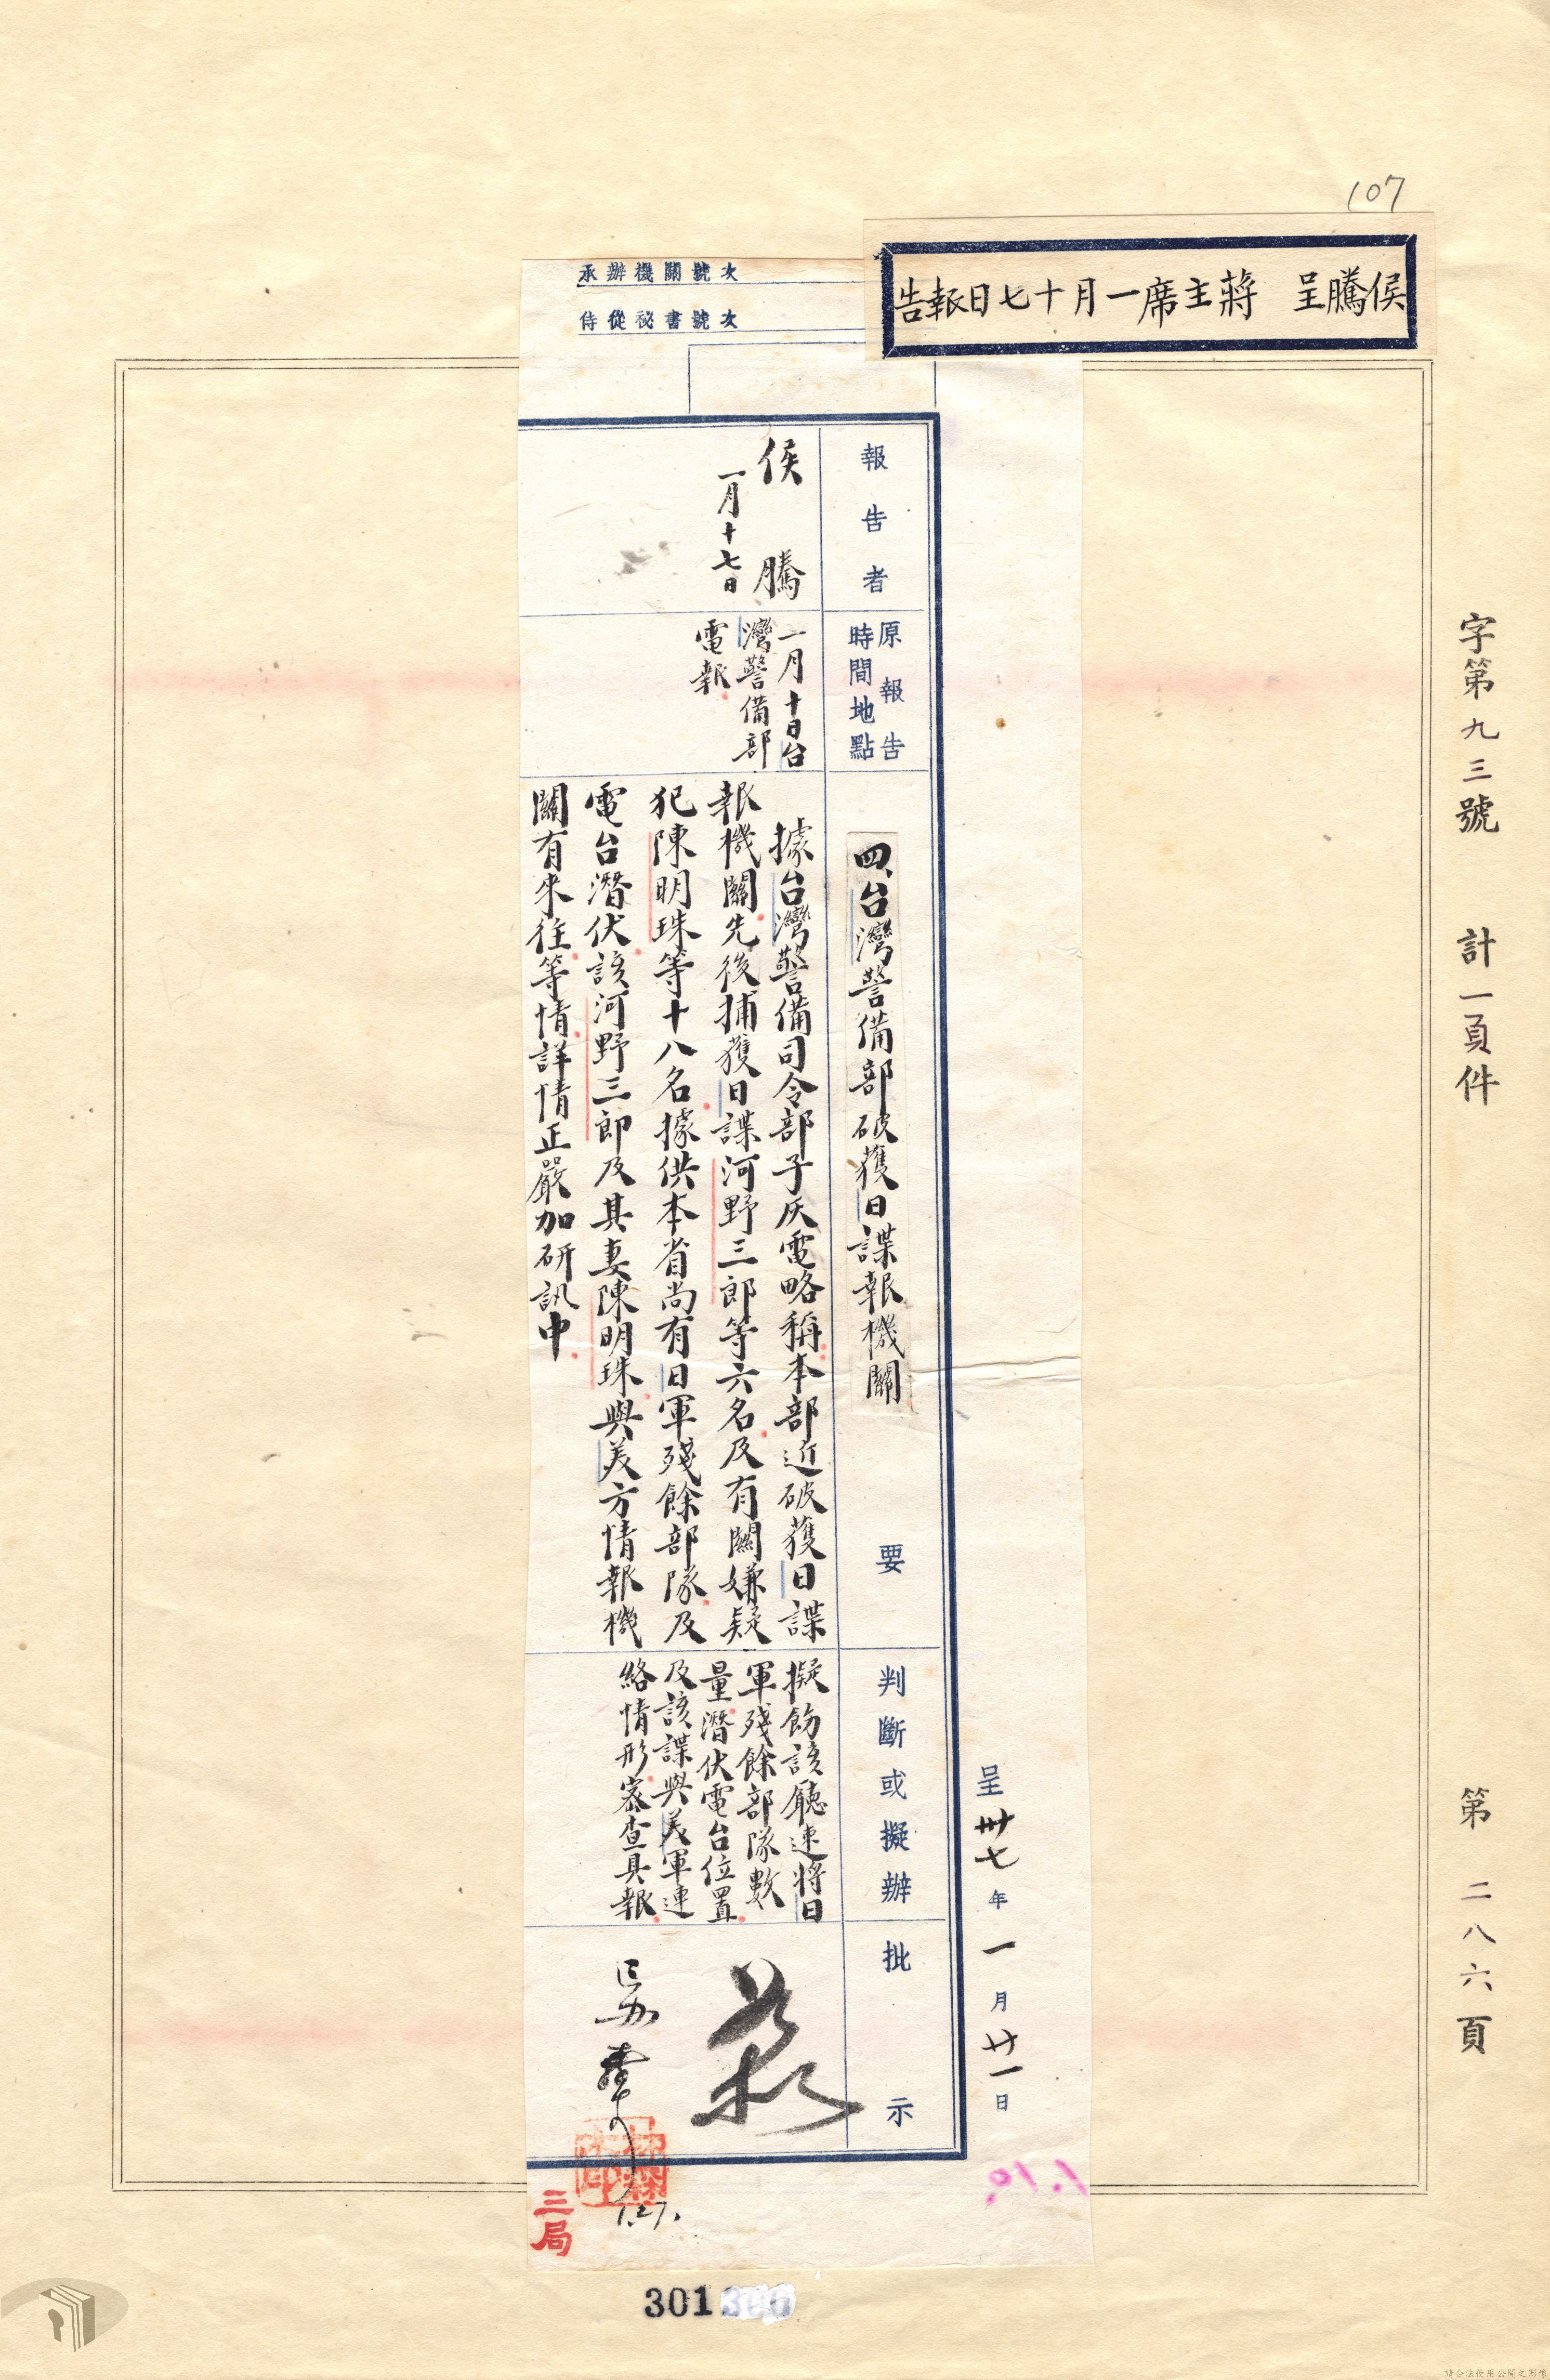 107
侯騰呈　蔣主席一月十七日報告
承辦機關號次
侍從秘書號次
字第九三號　計一頁件　第二八六頁
呈卅七年一月廿一日
報告者
侯騰
一月十七日
原報告
時間地點
一月十日台
灣警備部
電報
要
四、台灣警備部破獲日諜報機關
據台灣警備司令部子灰電略稱本部近破獲日諜
報機關先後捕獲日諜河野三郎等六名及有關嫌疑
犯陳明珠等十八名據供本省尚有日軍殘餘部隊及
電台潛伏該河野三郎及其妻陳明珠與美方情報機
關有來往等情詳情正嚴加研訊中
判斷或擬辦
擬飭該廳速將日
軍殘餘部隊數
量潛伏電台位置
及該諜與美軍連
絡情形密查具報
批示
1.27.
三局
1.19.
301
請合法使用公開之影像